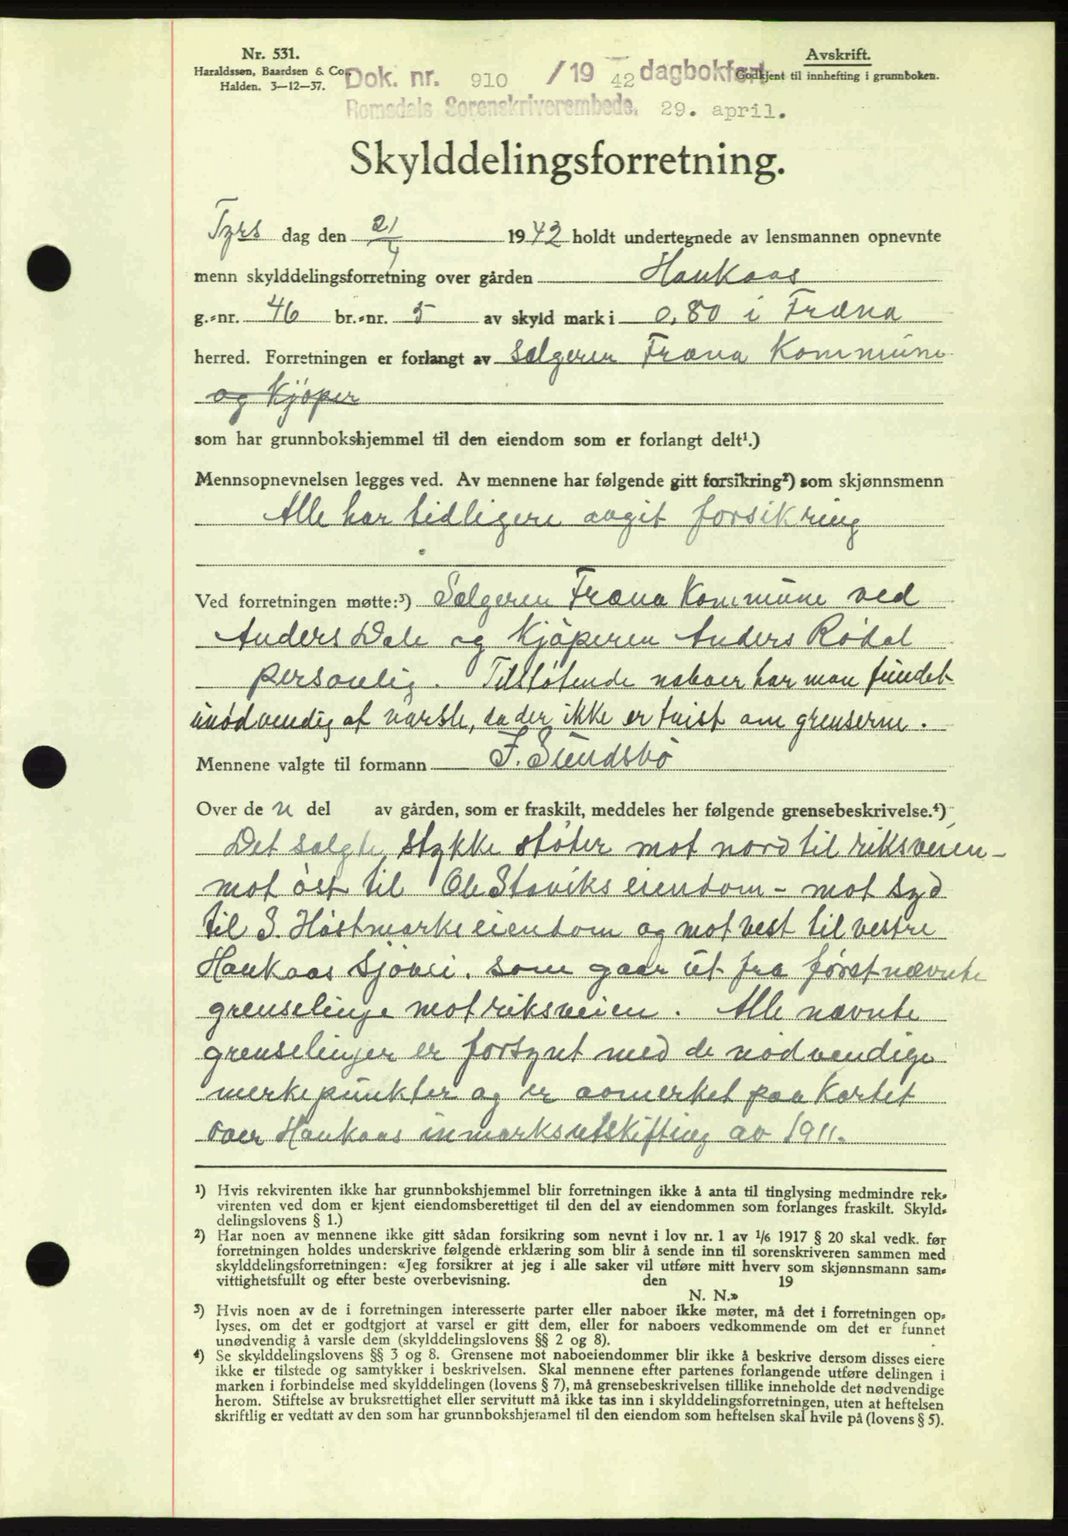 Nr. 531.
Haraldssen, Baardsen & Co.,
Halden. 3—12—37.
Dok. nr. 910 /19 42 dagbokført
Romsdals Sorenskriverembede, 29. april.
Avskrift.
Godkjent til innhefting i grunnboken.
Skylddelingsforretning.
Tyrs dag den 21/4 1942 holdt undertegnede av lensmannen opnevnte
menn skylddelingsforretning over gården Haukaas
g.-nr. 46 br.-nr. 5 av skyld mark i 0,80 i Fræna
herred. Forretningen er forlangt av Sælgeren Fræna Kommune
og Kjøper
som har grunnbokshjemmel til den eiendom som er forlangt delt¹.)
Mennsopnevnelsen legges ved. Av mennene har følgende gitt forsikring²) som skjønnsmenn
Alle har tidligere avgit forsikring
Ved forretningen møtte:³) Sælgeren Fræna Kommune ved
Anders Dale og Kjøperen Anders Rødal
personlig. Tilstøtende naboer har man fundet
unødvendig at varsle, da der ikke er tvist om grenserne.
Mennene valgte til formann F. Sundsbø
Over de n del av gården, som er fraskilt, meddeles her følgende grensebeskrivelse.⁴)
Det solgte stykke støter mot nord til riksveien -
mot øst til Ole Staviks eiendom - mot syd
til S. Høstmarks eiendom og mot vest til vestre
Haukaas Sjøvei. som gaar ut fra førstnævnte
grenselinje mot riksveien. Alle nævnte
grenselinjer er forsynt med de nødvendige
merkepunkter og er avmerket paa Kartet
over Haukaas inmarksutskifting av 1911.
¹) Hvis rekvirenten ikke har grunnbokshjemmel blir forretningen ikke å anta til tinglysing medmindre rek-
virenten ved dom er kjent eiendomsberettiget til den del av eiendommen som forlanges fraskilt. Skyld-
delingslovens § 1.)
²) Har noen av mennene ikke gitt sådan forsikring som nevnt i lov nr. 1 av 1/6 1917 § 20 skal vedk. før
forretningen holdes underskrive følgende erklæring som blir å sende inn til sorenskriveren sammen med
skylddelingsforretningen: «Jeg forsikrer at jeg i alle saker vil utføre mitt hverv som skjønnsmann sam-
vittighetsfullt og efter beste overbevisning. den 19
N. N.»
³) Hvis noen av de i forretningen interesserte parter eller naboer ikke møter, må det i forretningen op-
lyses, om det er godtgjort at varsel er gitt dem, eller for naboers vedkommende om det er funnet
unødvendig å varsle dem (skylddelingslovens §§ 2 og 8).
⁴) Se skylddelingslovens §§ 3 og 8. Grensene mot naboeiendommer blir ikke å beskrive dersom disses eiere
ikke er tilstede og samtykker i beskrivelsen. Skal mennene efter partenes forlangende utføre delingen i
marken i forbindelse med skylddelingen (lovens § 7), må grensebeskrivelsen tillike inneholde det nødvendige
herom. Stiftelse av bruksrettighet eller servitutt må ikke tas inn i skylddelingsforretningen, uten at heftelsen
skriftlig er vedtatt av den som har grunnbokshjemmel til den eiendom som heftelsen skal hvile på (lovens § 5).